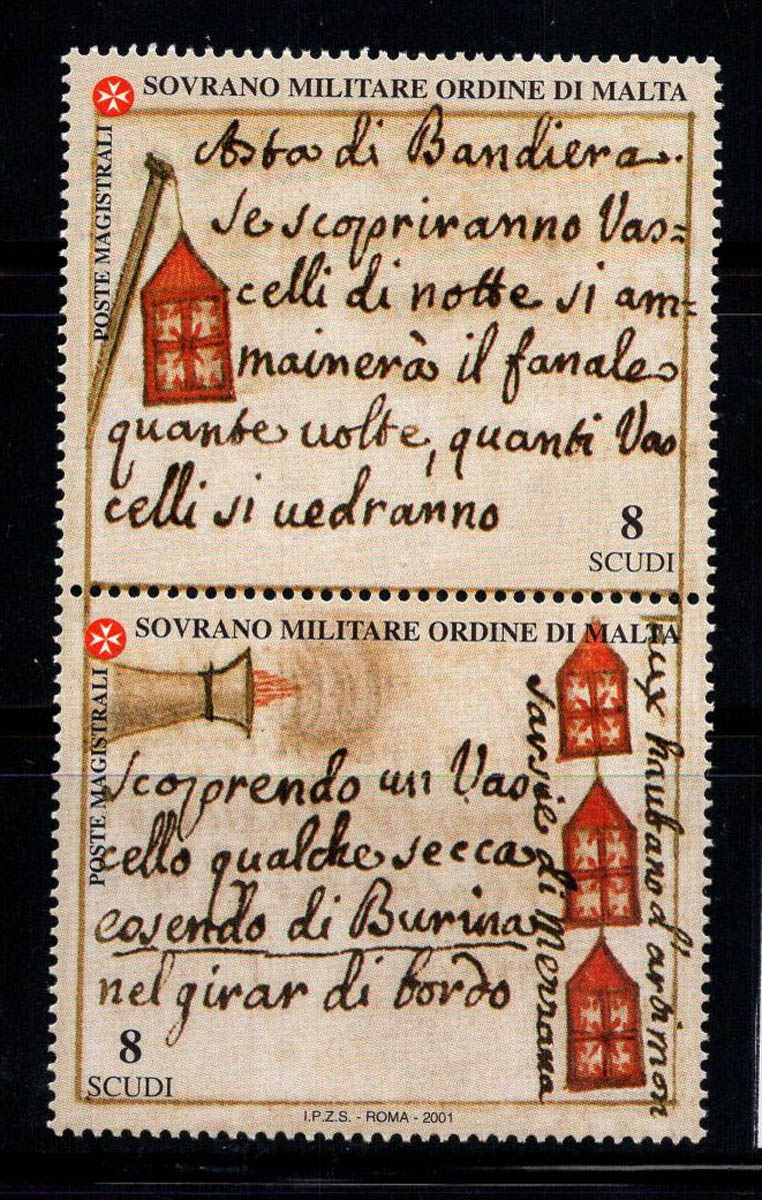 SOVRANO MILITARE ORDINE DI MALTA
POSTE MAGISTRALI
Asta di Bandiera.
se scopriranno Vas=
celli di notte si am=
mainerà il fanale
quante volte, quanti Vas
celli si vedranno
8
SCUDI
SOVRANO MILITARE ORDINE DI MALTA
POSTE MAGISTRALI
scoprendo un Vas
cello qualche secca
cosendo di Burina
nel girar di bordo
Sarsie di Mezzana
haubano d'artimon
8
SCUDI
I.P.Z.S. - ROMA - 2001